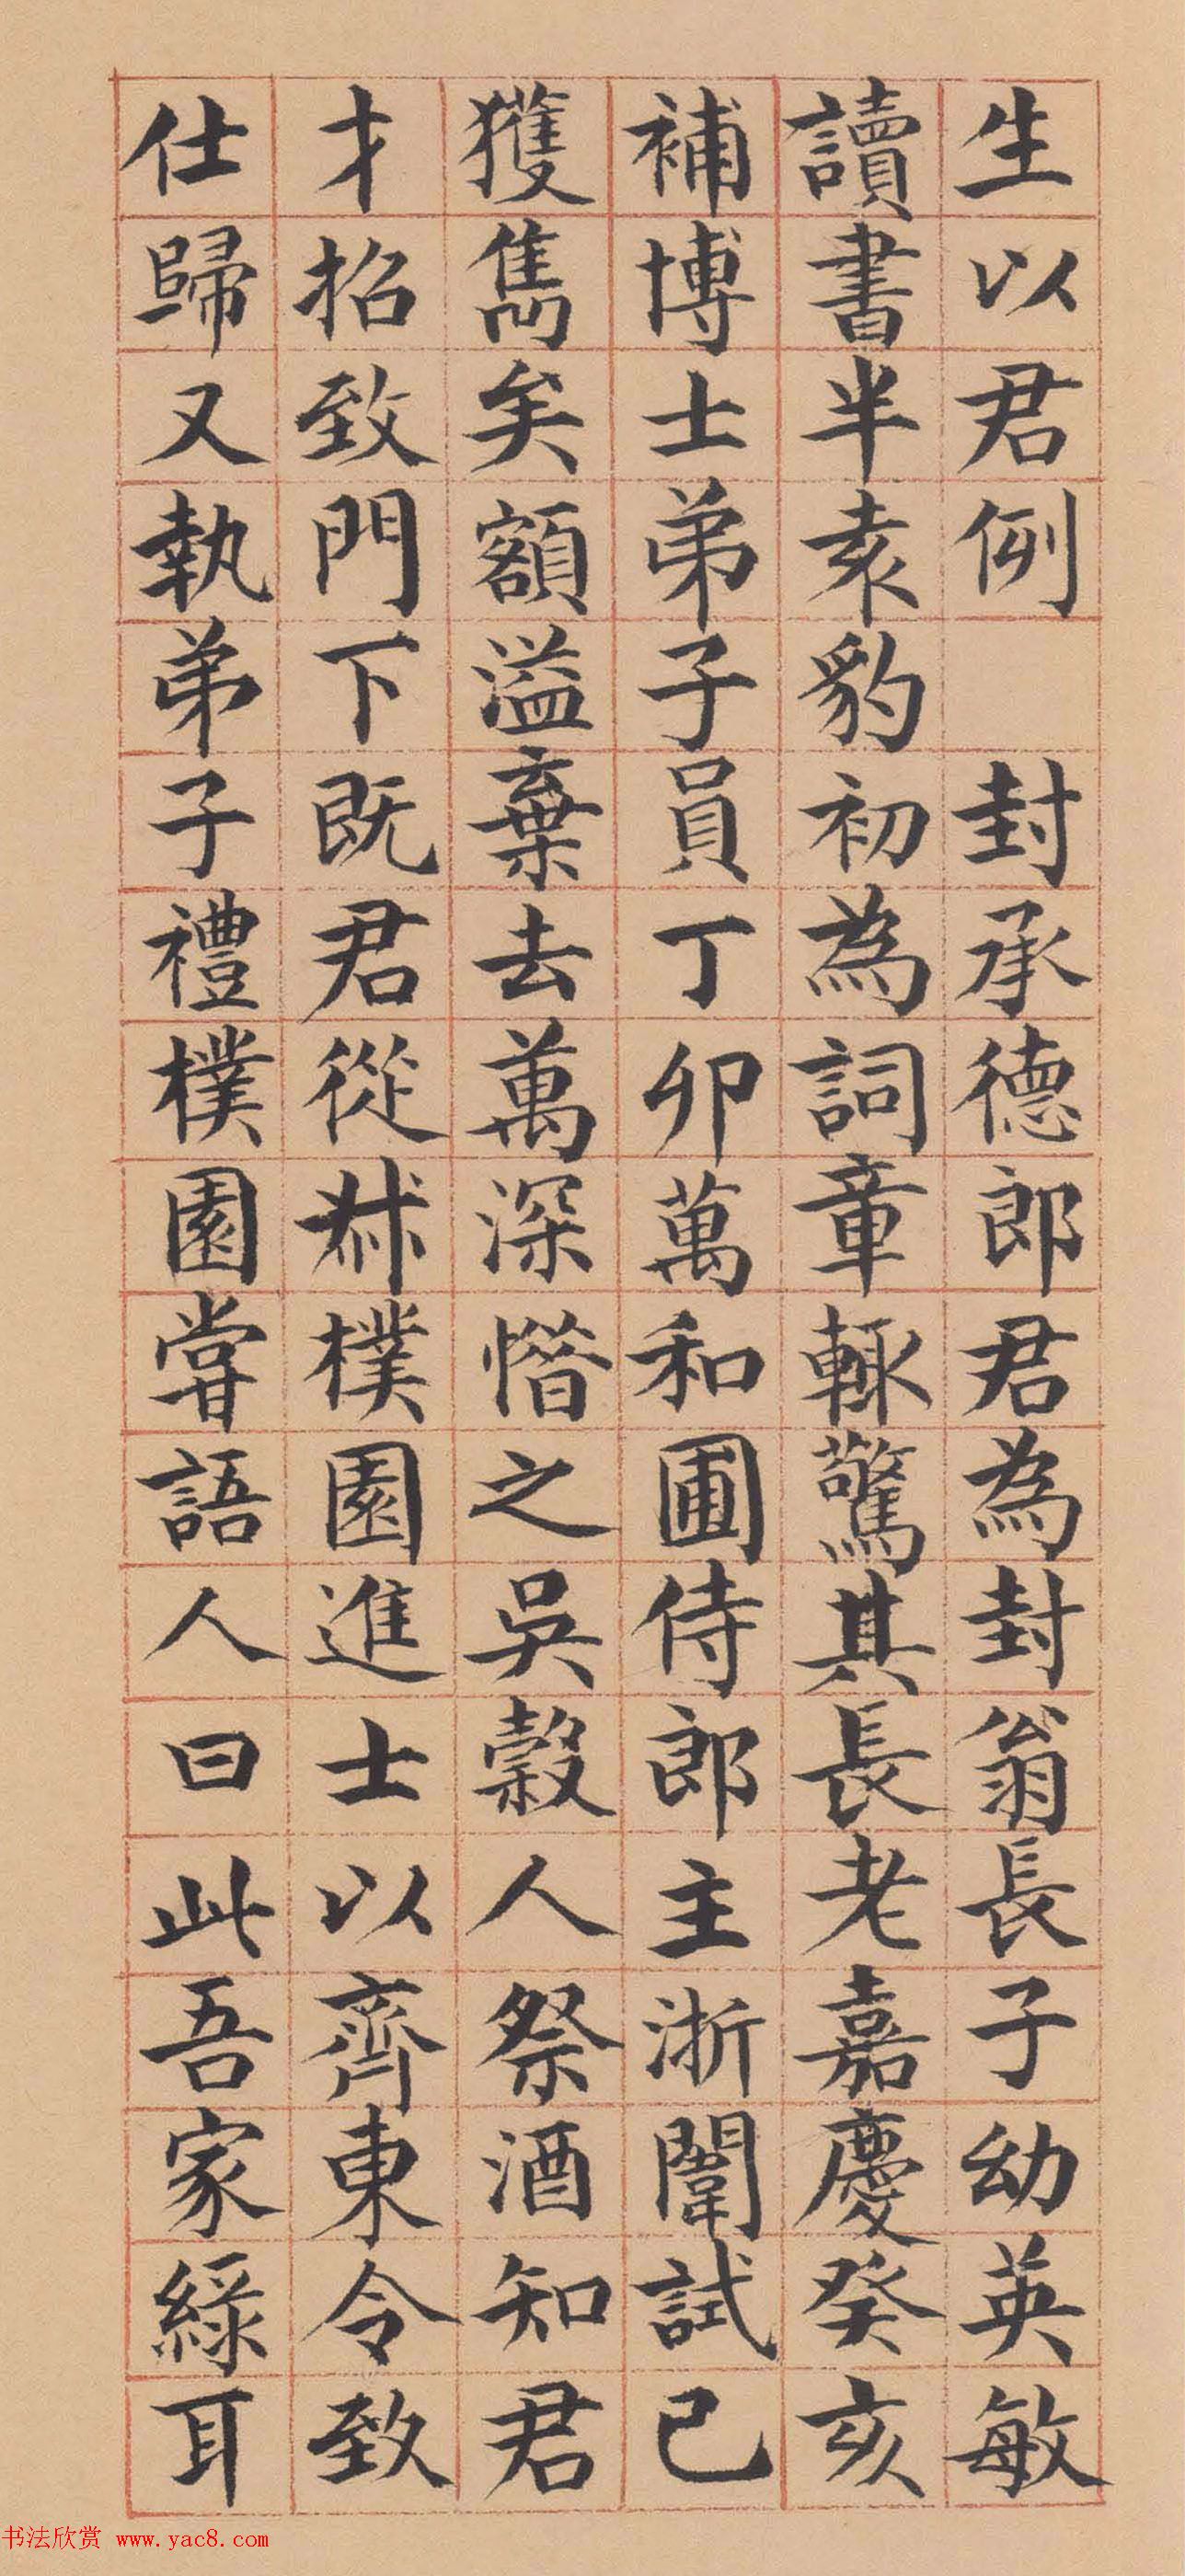 生以君例 封承德郎君為封翁長子幼英敏
讀書半袁豹初為詞章輒驚其長老嘉慶癸亥
補博士弟子員丁卯萬和圃侍郎主浙闈試已
獲雋矣額溢棄去萬深惜之吳榖人祭酒知君
才招致門下既君從叔樸園進士以齊東令致
仕歸又執弟子禮樸園嘗語人曰此吾家綠耳
书法欣赏 www.yac8.com